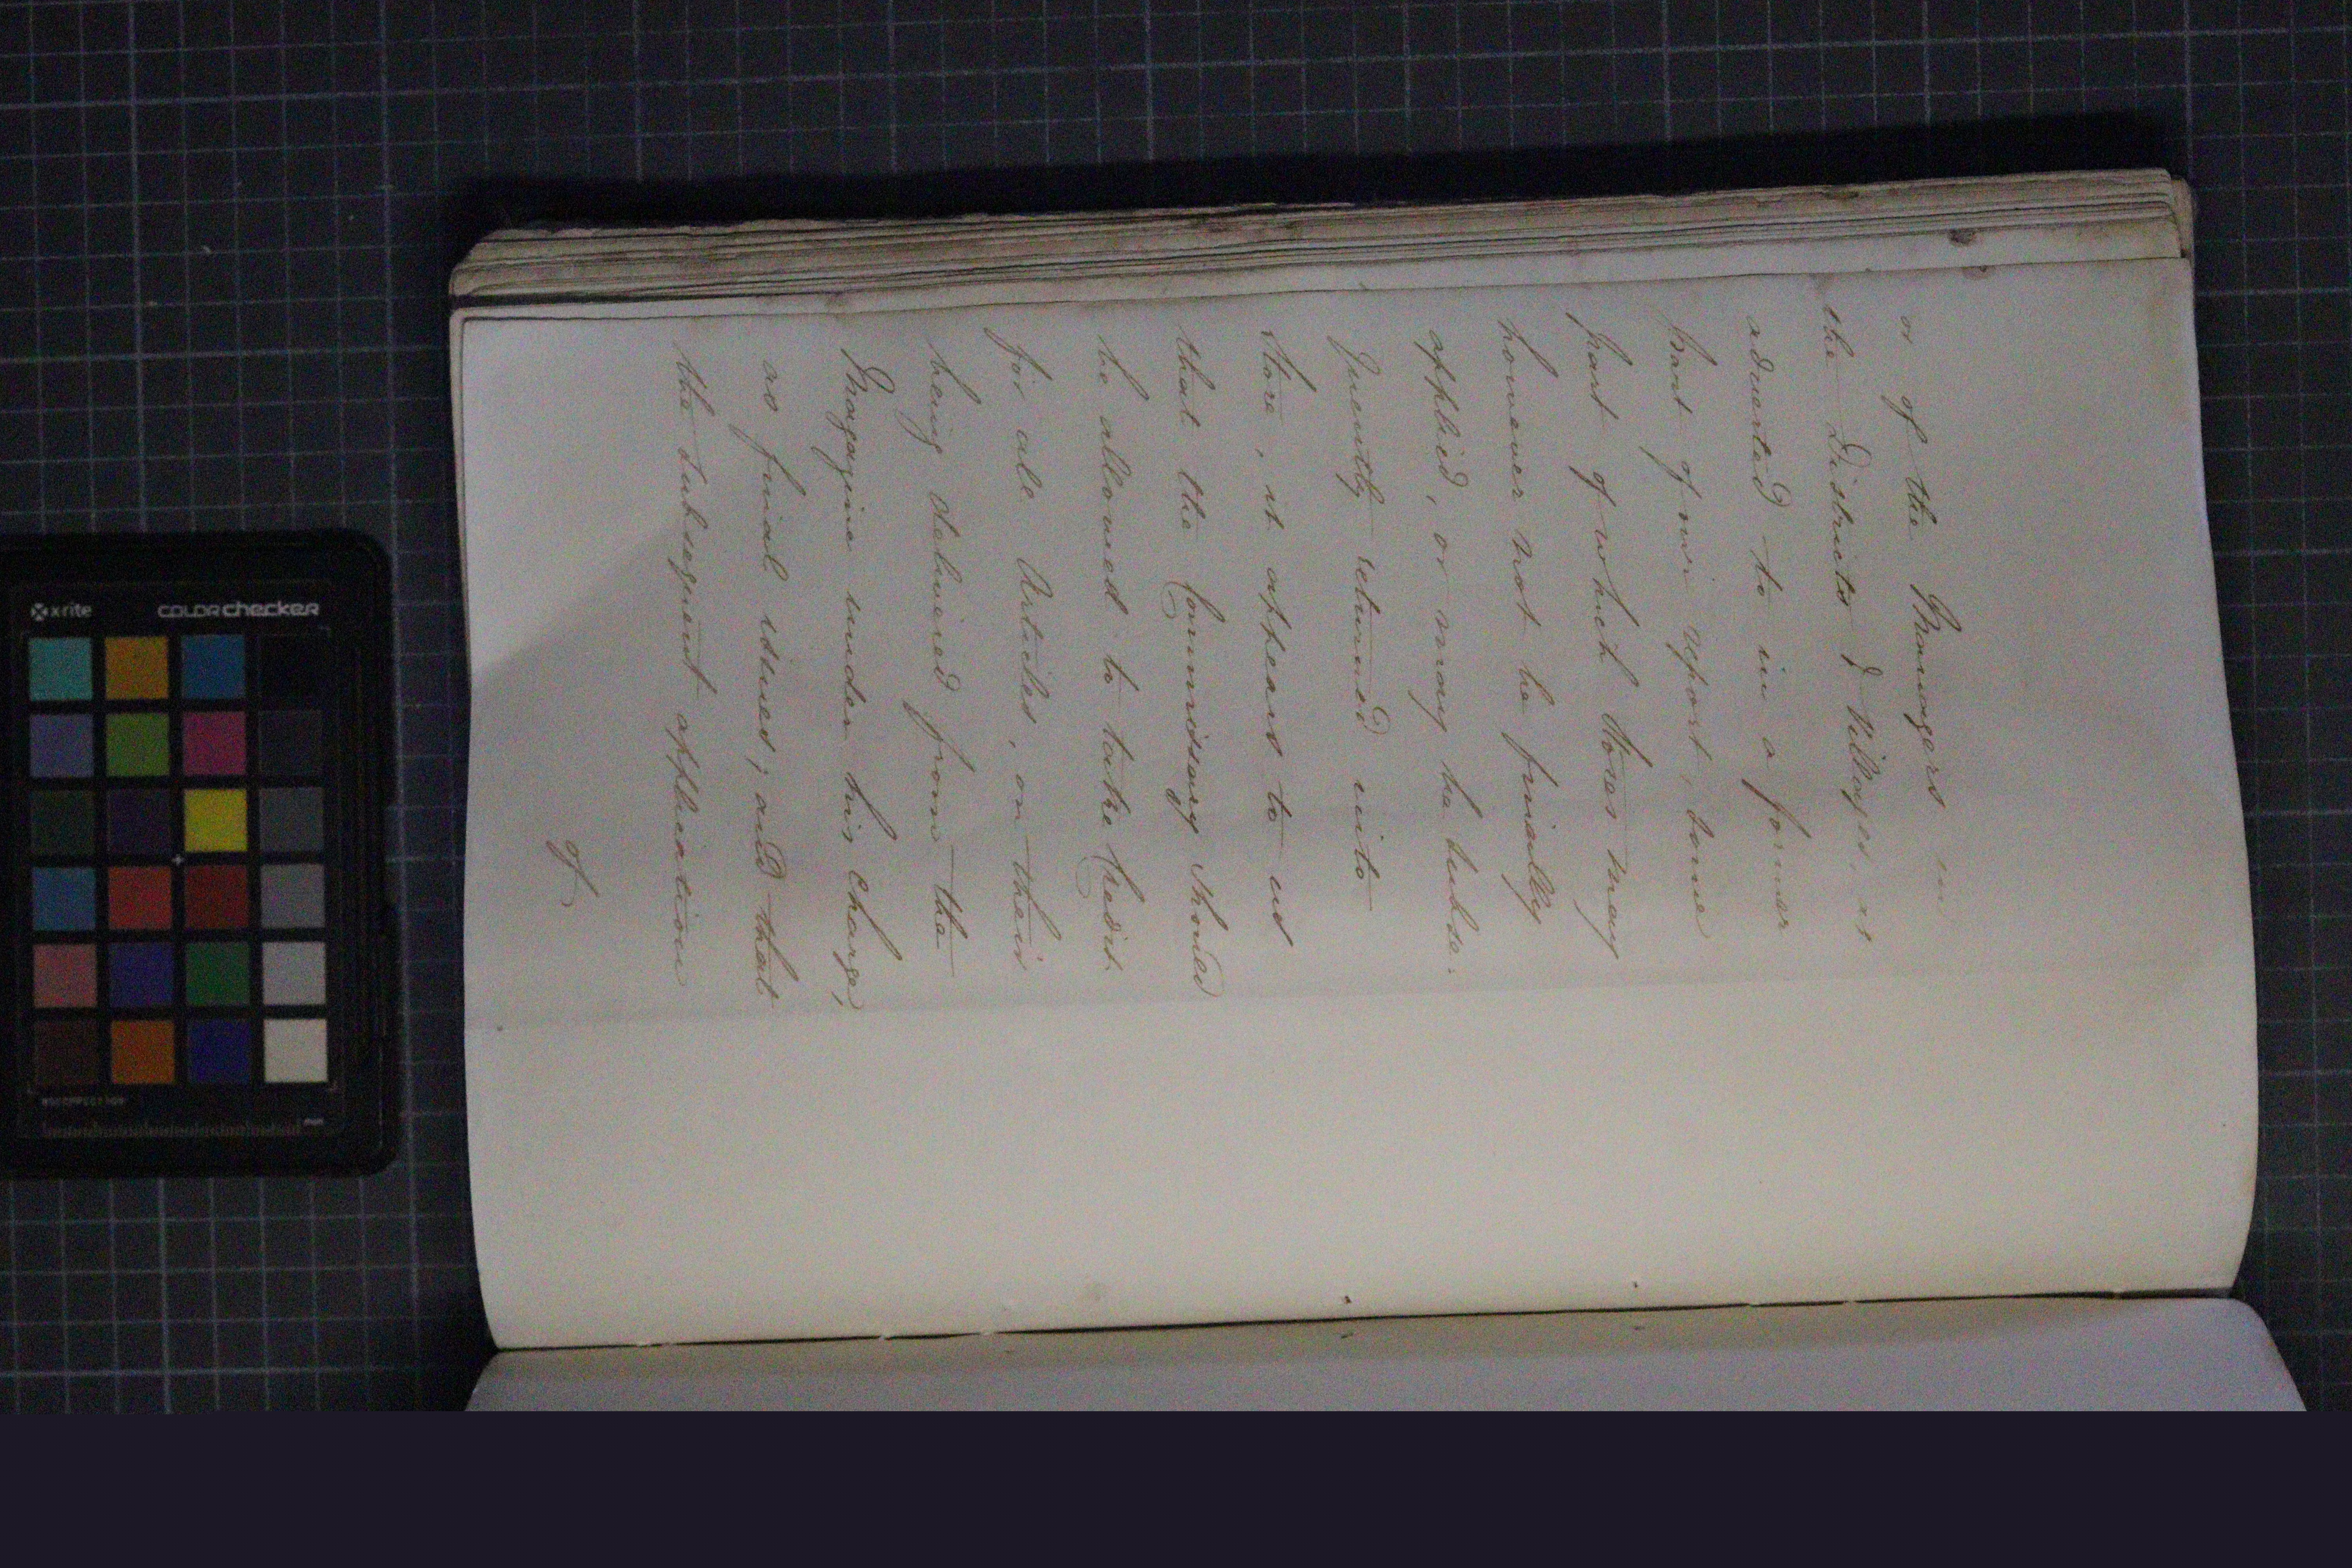 or of the Managers in
the Districts & Villages, as
adverted to in a former
part of our report; some
part of which Stores may
however not be finally
applied, or may be subse-
quently returned into
Store, it appears to us
that the Commissary should
be allowed to take Credit
for all Articles, on their
being delivered from the
Magazine under his charge,
as final issues; and that
the subsequent application
of
x-rite
colorchecker